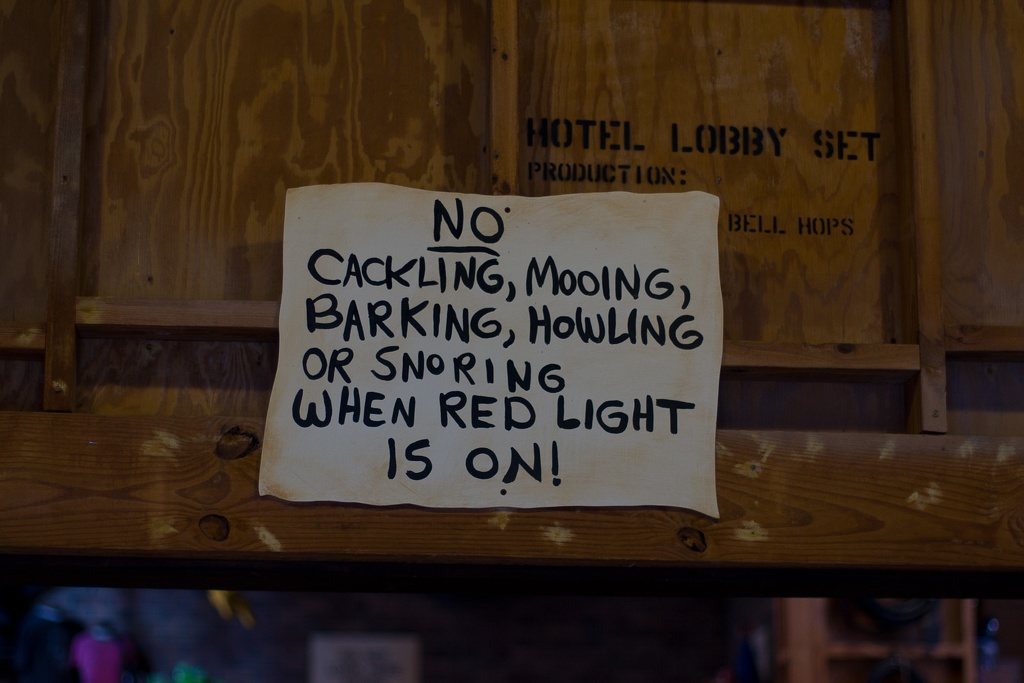 HOTEL LOBBY SET
PRODUCTION:
BELL HOPS
NO
CACKLING, MOOING,
BARKING, HOWLING
OR SNORING
WHEN RED LIGHT
IS ON!